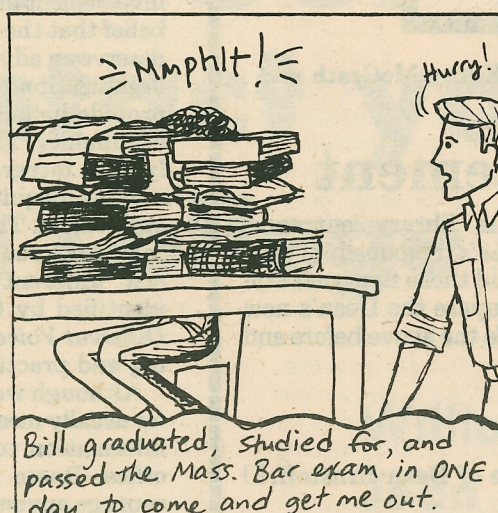 Mmphlt!
Hurry!
Bill graduated, studied for, and
passed the Mass. Bar exam in ONE
day to come and get me out.